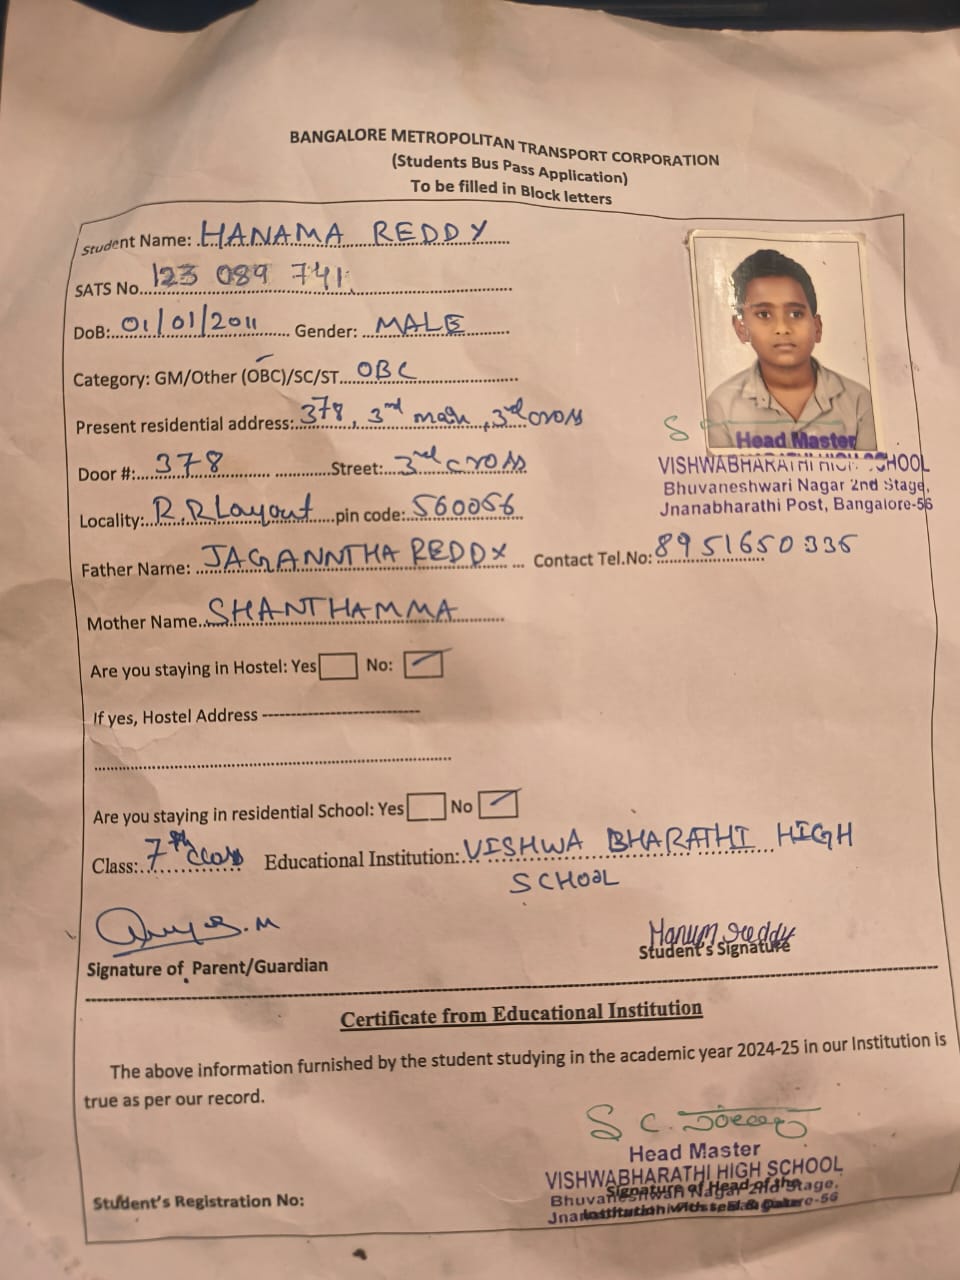 BANGALORE METROPOLITAN TRANSPORT CORPORATION
(Students Bus Pass Application)
To be filled in Block letters
Student Name: HANAMA REDDY
SATS No. 123 089 741
DoB: 01/01/2011 Gender: MALE
Category: GM/Other (OBC)/SC/ST OBC
Present residential address: 378, 3rd main, 3rd cross
Door #: 378 Street: 3rd cross
Locality: R R Layout pin code: 560056
Father Name: JAGANNTHA REDDY Contact Tel.No: 8951650336
Mother Name SHANTHAMMA
Are you staying in Hostel: Yes No:
If yes, Hostel Address
Are you staying in residential School: Yes No
Class: 7th class Educational Institution: VISHWA BHARATHI HIGH
SCHOOL
Head Master
VISHWABHARATHI HIGH SCHOOL
Bhuvaneshwari Nagar 2nd Stage,
Jnanabharathi Post, Bangalore-56
Signature of Parent/Guardian
Hanum reddy
Student's Signature
Certificate from Educational Institution
The above information furnished by the student studying in the academic year 2024-25 in our Institution is
true as per our record.
S C.
Head Master
VISHWABHARATHI HIGH SCHOOL
Bhuvaneshwari Nagar 2nd Stage,
Signature of Head of the
Institution with seal & Date
Student's Registration No: